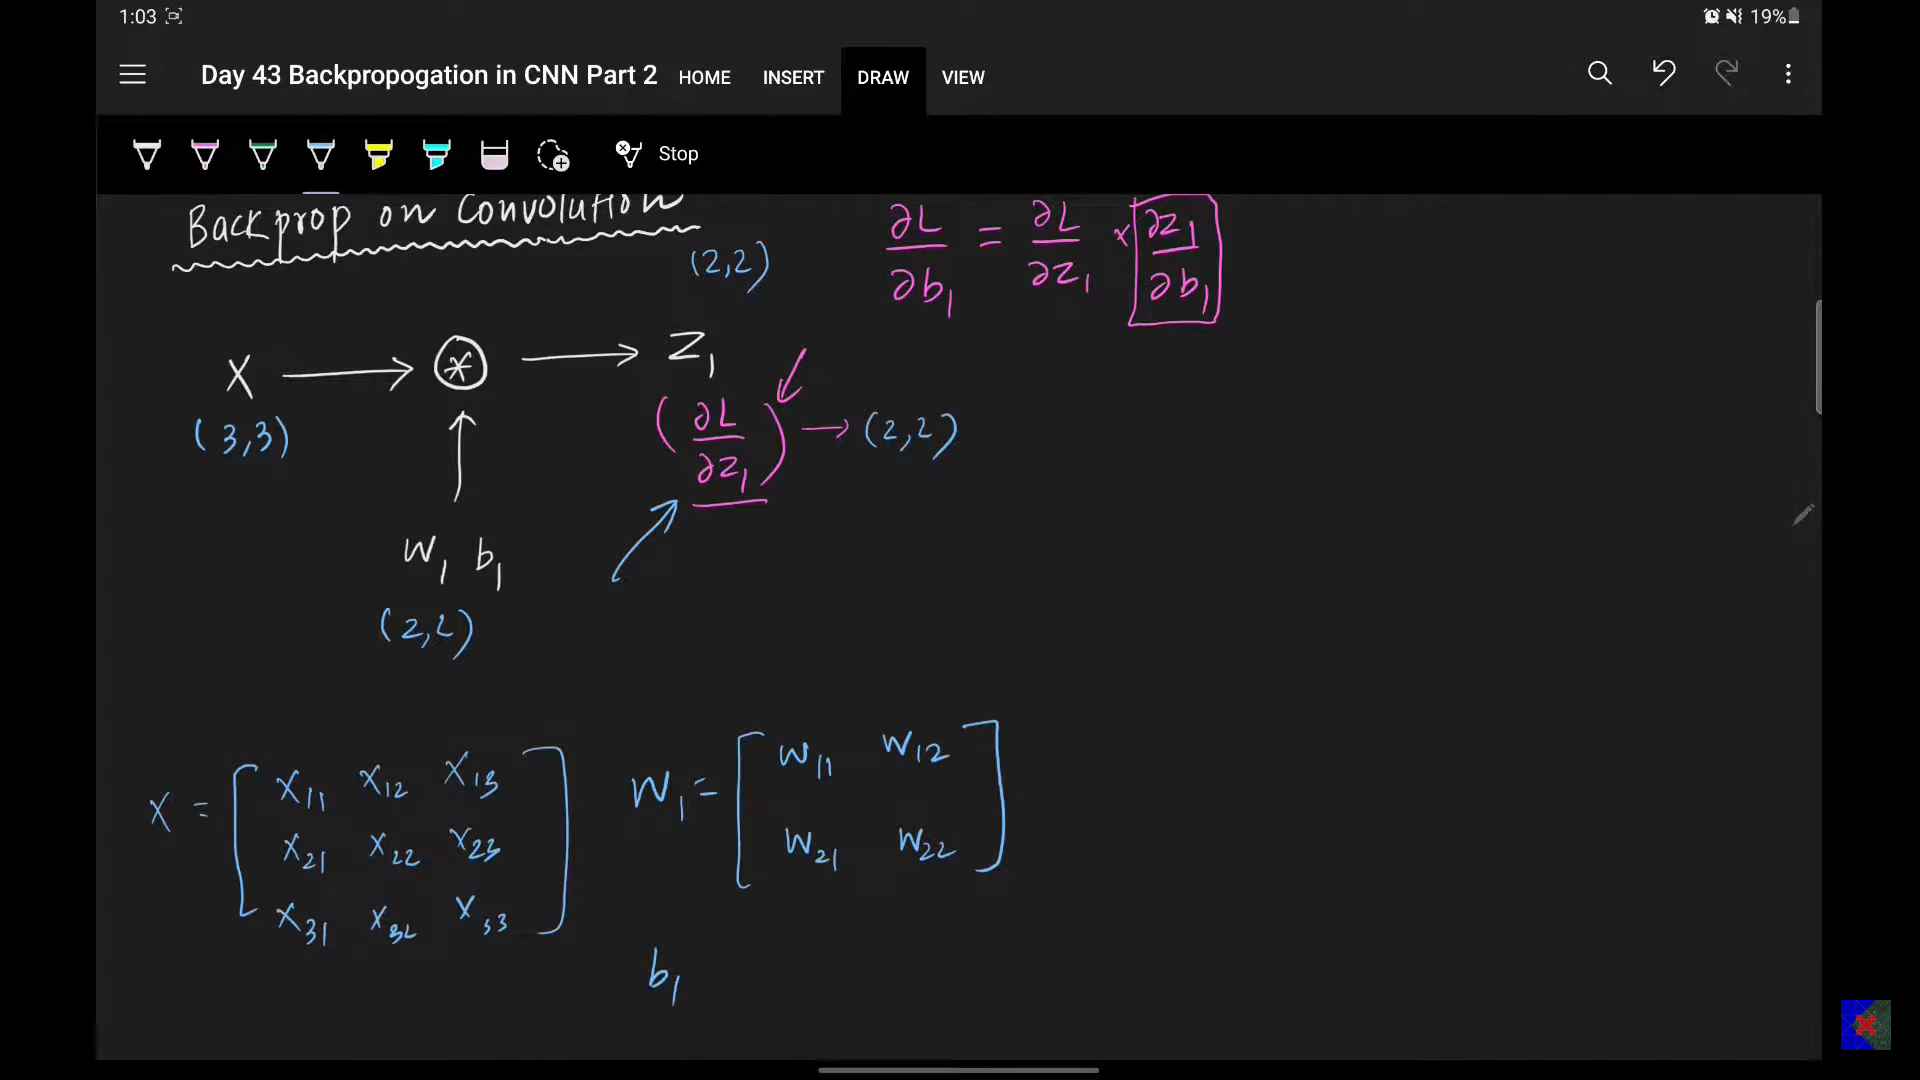 1:03 19%
Day 43 Backpropogation in CNN Part 2 HOME INSERT DRAW VIEW
Stop
Backprop on Convolution
(2,2)
∂L/∂b₁ = ∂L/∂z₁ × ∂z₁/∂b₁
X → ⊛ → Z₁
(3,3)
(∂L/∂z₁) → (2,2)
W₁ b₁
(2,2)
X = [ X₁₁ X₁₂ X₁₃
X₂₁ X₂₂ X₂₃
X₃₁ X₃₂ X₃₃ ]
W₁ = [ W₁₁ W₁₂
W₂₁ W₂₂ ]
b₁